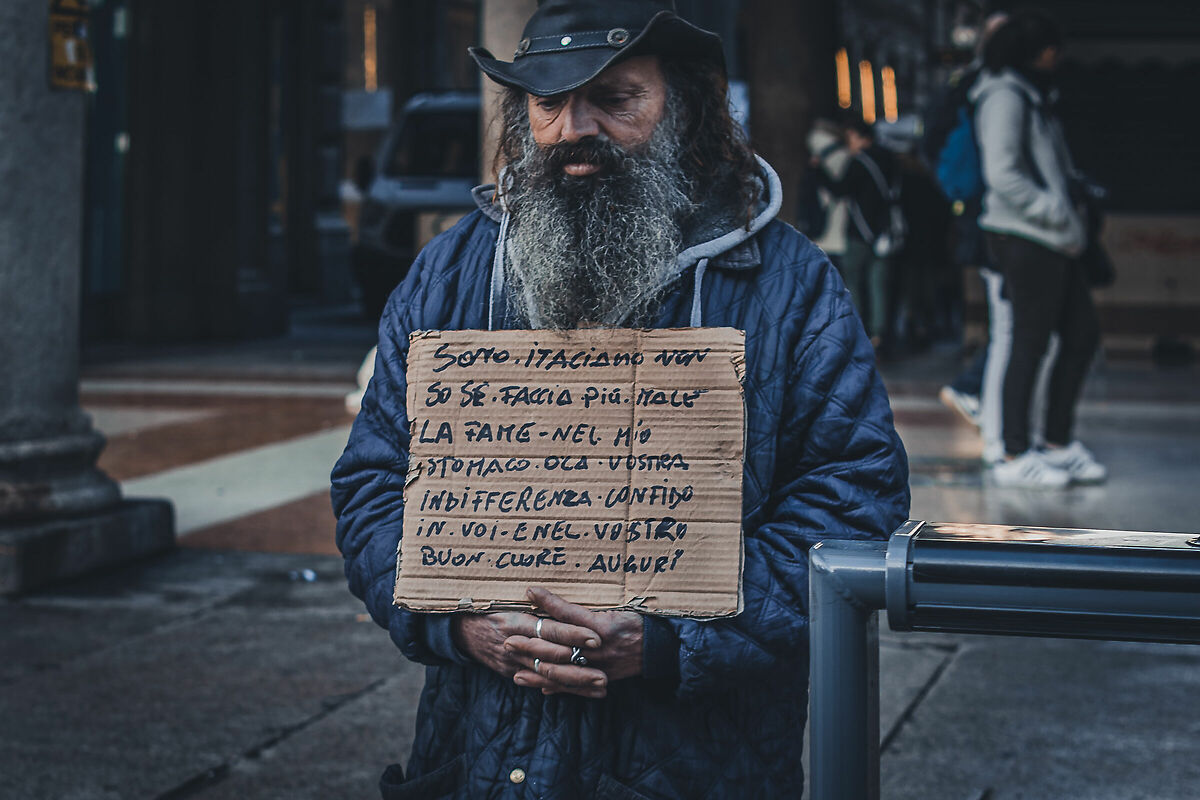 SONO. ITALIANO NON
SO SE. FACCIA PIÙ. MALE
LA FAME - NEL. MIO
STOMACO. OLA. VOSTRA
INDIFFERENZA. CONFIDO
IN. VOI. E NEL. VOSTRO
BUON. CUORE. AUGURI